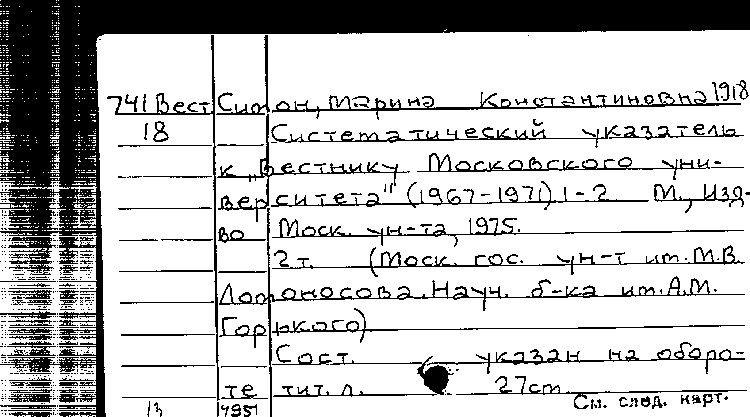 741 Вест Симон, Марина Константиновна 1918
18 Систематический указатель
к „Вестнику Московского уни-
верситета" (1967-1971) 1-2 М., Изд-
во Моск. ун-та, 1975.
2 т. (Моск. гос. ун-т им. М.В.
Ломоносова. Науч. б-ка им. А.М.
Горького)
Сост. указан на оборо-
те тит. л. 27cm
См. след. карт.
13 4951